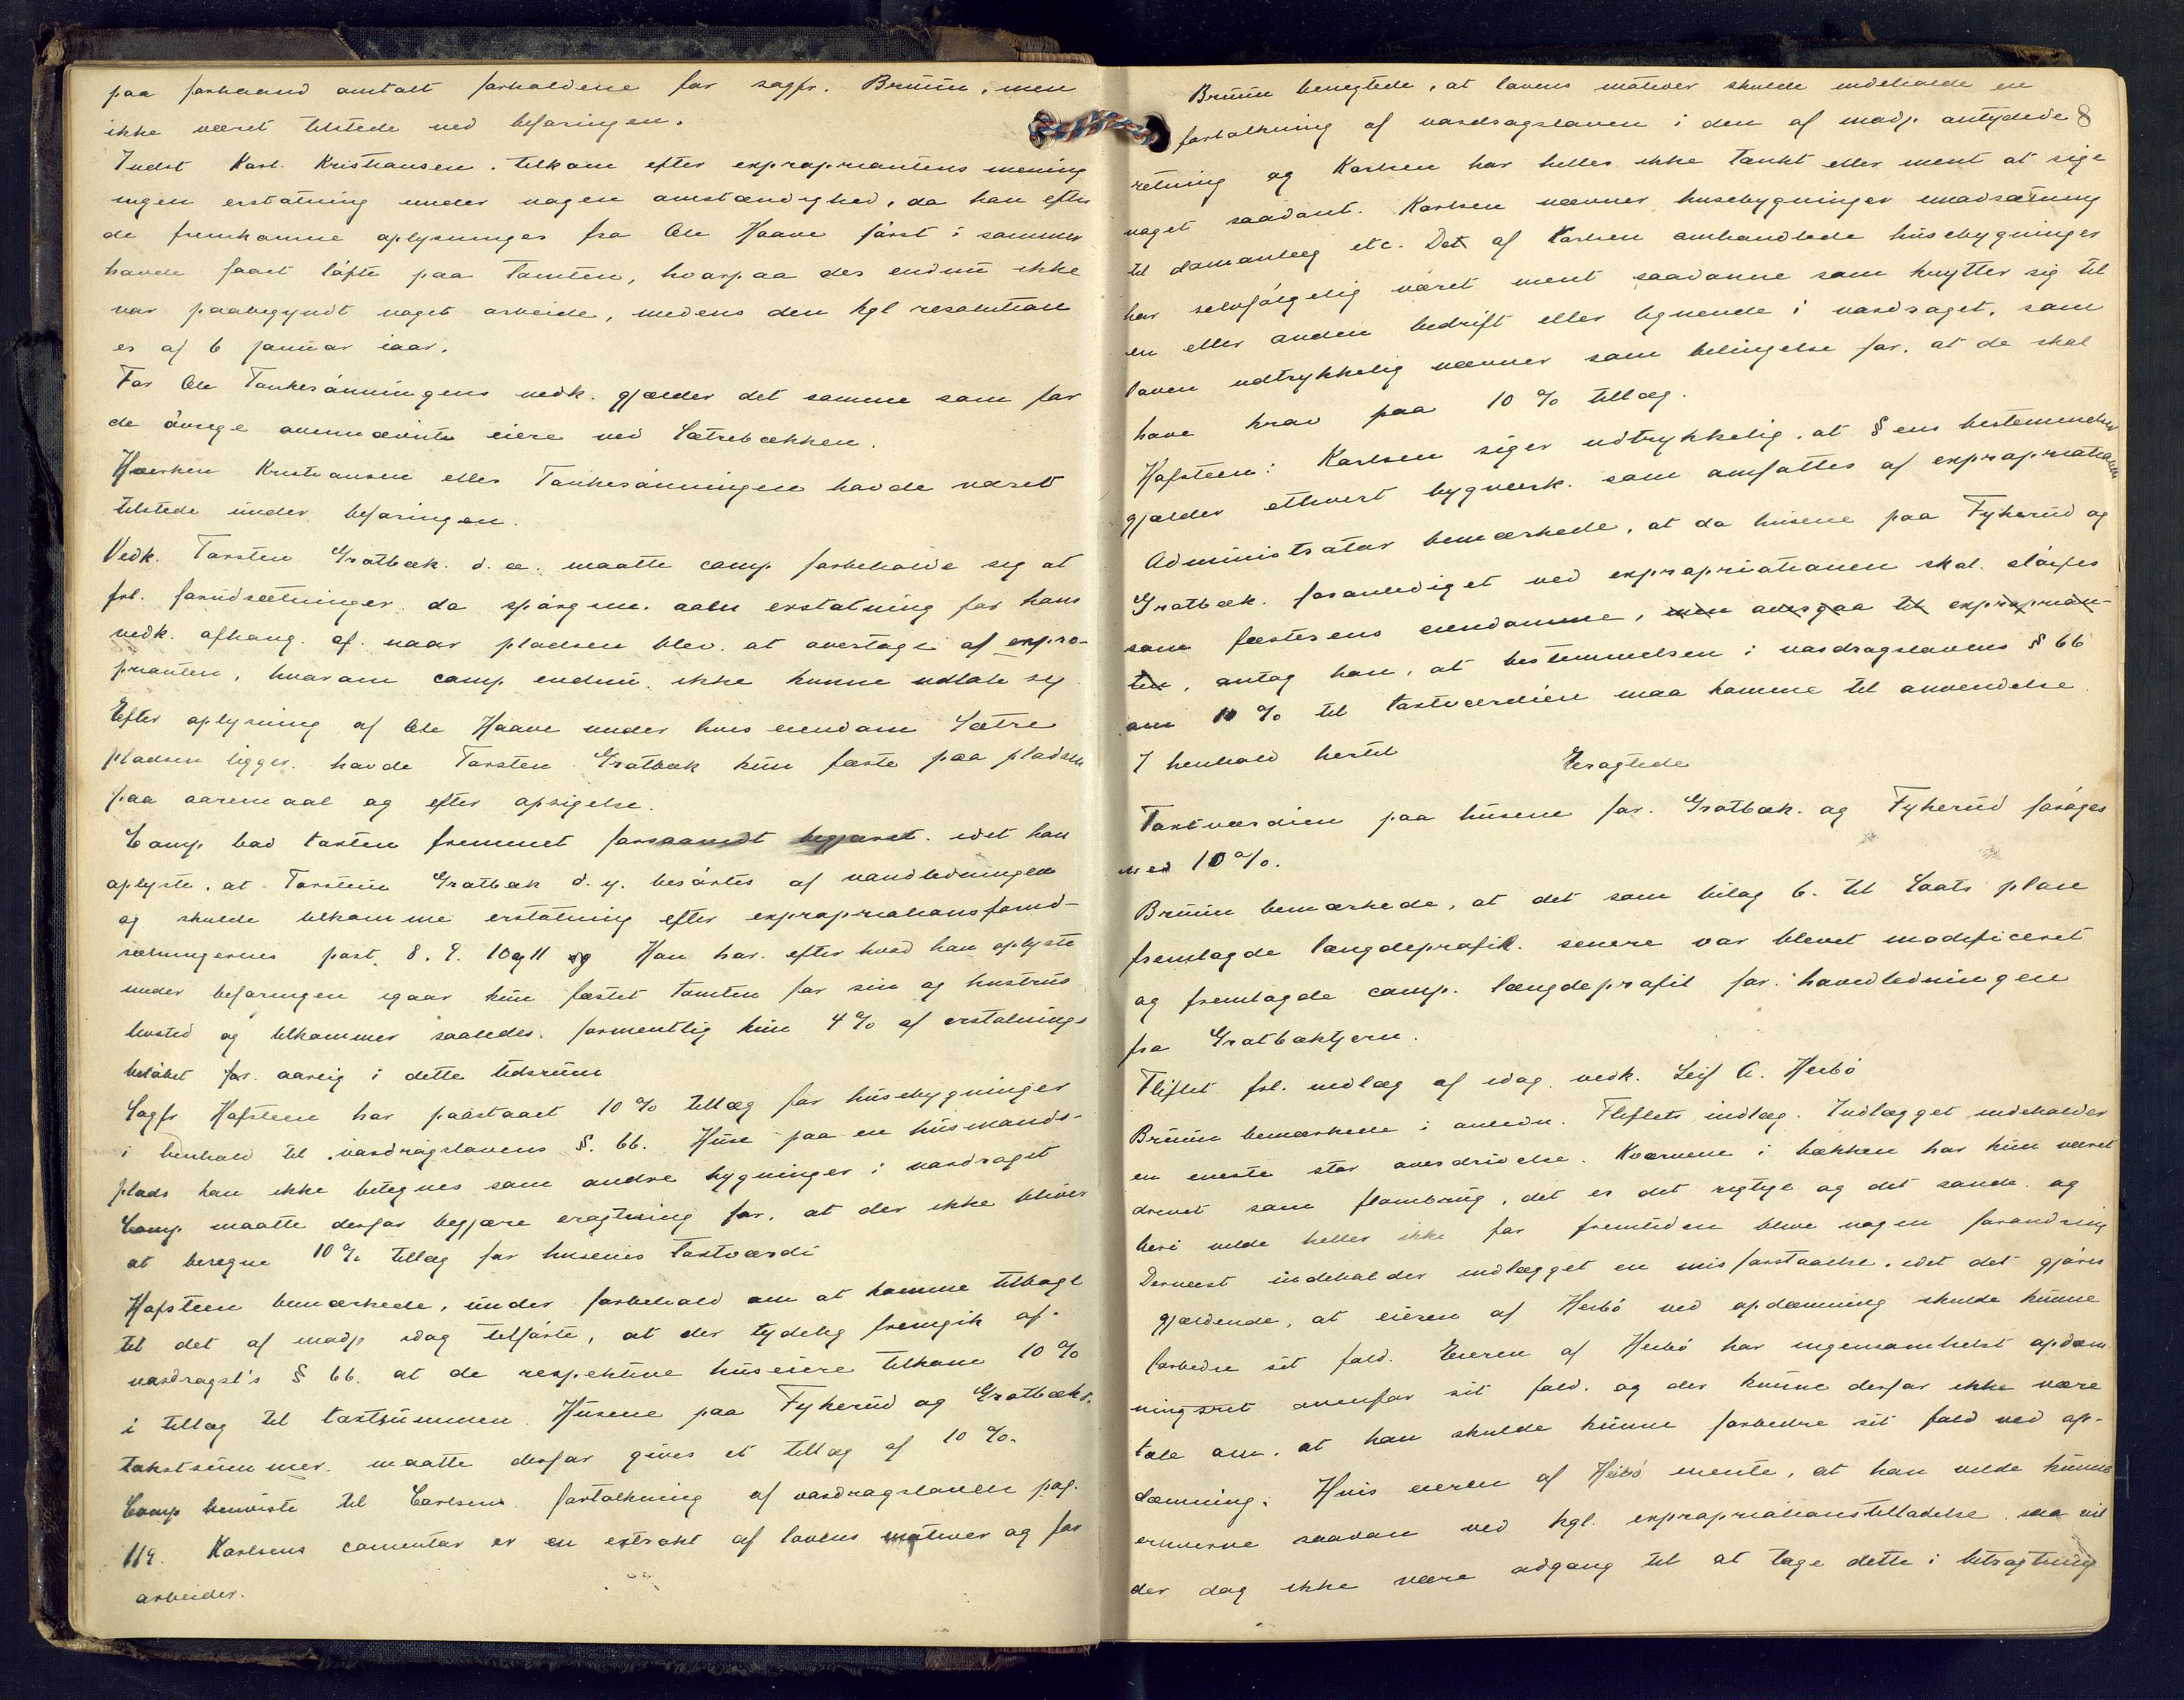 paa forhaand omtalt forholdene for sagfr. Bruun, men
ikke været tilstede ved befaringen.
Indst Karl Kristiansen tilkom efter expropriantens mening
ingen erstatning under nogen omstændighed, da han efter
de fremkomne oplysninger fra Ole Haave først i sommer
havde faaet løfte paa tomten, hvorpaa der endnu ikke
var paabegyndt noget arbeide, medens den kgl resolution
er af 6 januar iaar.
For Ole Tankerønningens vedk. gjælder det samme som for
de øvrige ovennævnte eiere ved Sætrebækken.
Hverken Kristiansen eller Tankerønningen havde været
tilstede under befaringen.
Vedk. Torsten Gratbæk d. æ. maatte comp forbeholde sig at
frl. forudsætninger, da spørgsm. aabn erstatning for hans
vedk. afhang. af naar pladsen blev at overtage af expro-
prianten, hvorom comp endnu ikke kunne udtale sig
Efter oplysning af Ole Haave under hvis eiendom Sætre
pladsen ligger havde Torsten Gratbæk kun fæste paa pladsen
paa aaremaal og efter opsigelse.
Comp. bad taxten fremmet idet han
oplyste, at Torstein Gratbæk d. y. berørtes af vandledningen
og skulde tilkomme erstatning efter expropriationsforud-
sætningernes post. 8. 9. 10 og 11 og Han har efter hvad han oplyste
under befaringen igaar kun fæstet tomten for sin og hustrus
levetid og tilkommer saaledes formentlig kun 4% af erstatnings
beløbet for aarlig i dette tidsrum
Sagfr Hafsteen har paastaaet 10 % tillæg for husebygninger
i henhold til vasdragslovens §. 66. Huse paa en husmands-
plads kan ikke betegnes som andre bygninger i vasdraget
Comp. maatte derfor begjære eragtning for, at der ikke bliver
at beregne 10 % tillæg for husenes taxtværdi
Hafsteen bemærkede, under forbehold om at komme tilbage
til det af modp idag tilførte, at der tydelig fremgik af
vasdragsl's § 66. at de respektive huseiere tilkom 10 %
i tillæg til taxtsummen. Husene paa Fykerud og Gratbæks
takstsummer maatte derfor gives et tillæg af 10 %.
Comp henviste til Carlsens fortolkning af vasdragsloven pag.
119. Karlsens comentar er en extrakt af lovens motiver og for
arbeider.
8
Bruun benegtede, at lovens motiver skulde indeholde en
fortolkning af vasdragsloven i den af modp. antydede
retning og Karlsen har heller ikke tænkt eller ment at sige
noget saadant. Karlsen nævner husebygninger
til damanlæg etc. Det af Karlsen omhandlede husebygninger
har selvfølgelig været ment saadanne som knytter sig til
en eller anden bedrift eller lignende i vasdraget, som
loven udtrykkelig nævner som betingelse for, at de skal
have krav paa 10 % tillæg.
Hafsteen: Karlsen siger udtrykkelig, at §ens bestemmelser
gjælder ethvert bygverk som omfattes af expropriationen
Administrator bemærkede, at da husene paa Fykerud og
Gratbæk foranlediget ved expropriationen skal sløifes
som fæsterens eiendomme, men overgaa til exproprian-
ten, antog han, at bestemmelsen i vasdragslovens § 66
om 10 % til taxtværdien maa komme til anvendelse.
I henhold hertil
Eragtede
Taxtværdien paa husene for Gratbæk og Fykerud forøges
med 10 %.
Bruun bemærkede, at det som bilag 6. til Saats plan
fremlagde længdeprofil senere var blevet modificeret
og fremlagde comp. længdeprofil for hovedledningen
fra Gratbæktjern.
Fliflet frl. indlæg af idag vedk. Leif A. Heibø
Bruun bemærkede i anledn. Fliflets indlæg. Indlægget indeholder
en eneste stor overdrivelse. Kværnene i bækken har kun været
drevet som flombrug, det er det rigtige og det sande og
heri vilde heller ikke for fremtiden blive nogen forandring
Dernæst indeholder indlægget en misforstaaelse, idet det gjøres
gjældende, at eieren af Heibø ved opdæmning skulde kunne
forbedre sit fald. Eieren af Heibø har ingensomhelst opdæm
ningsret ovenfor sit fald, og der kunne derfor ikke være
tale om, at han skulde kunne forbedre sit fald ved op-
dæmning. Hvis eieren af Heibø mente, at han vilde kunne
erhverve saadan ved kgl. expropriationstilladelse saa vil
der dog ikke være adgang til at tage dette i betragtning